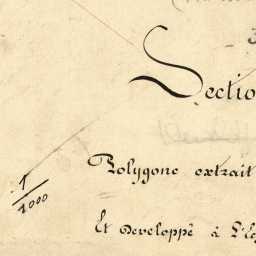 Sectio
Polygone extrait
1/1000
Et Developpé à L'Ec